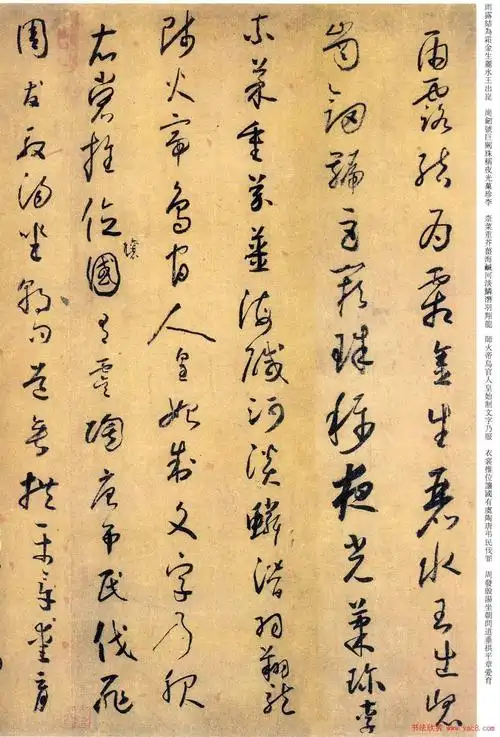 雨露結為霜金生麗水玉出崑 崗劍號巨闕珠稱夜光菓珍李 奈菜重芥薑海鹹河淡鱗潛羽翔龍 師火帝鳥官人皇始制文字乃服 衣裳推位讓國有虞陶唐弔民伐罪 周發殷湯坐朝問道垂拱平章愛育
雨露結為霜金生麗水玉出崑
崗劍號巨闕珠稱夜光菓珍李
奈菜重芥薑海醎河淡鱗潛羽翔龍
師火帝鳥官人皇始制文字乃服
衣裳推位國有虞陶唐弔民伐罪
讓
周發殷湯坐朝問道垂拱平章愛育
书法欣赏 www.yac8.com